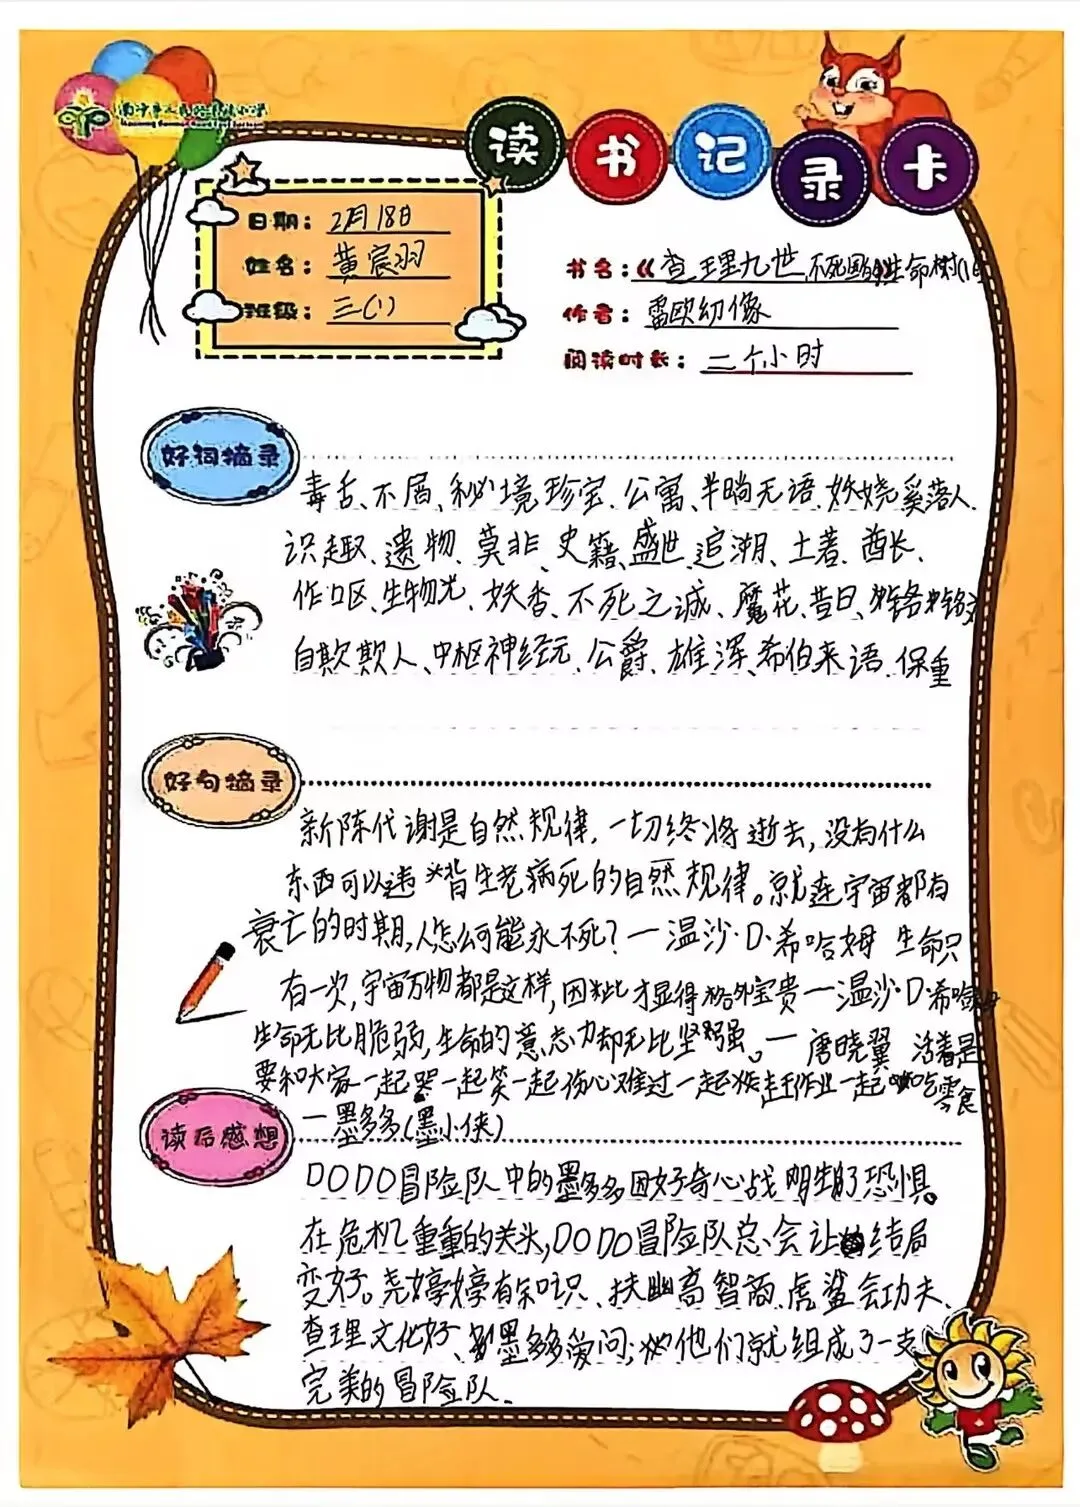 读书记录卡
日期：2月18日
姓名：黄宸羽
班级：三(1)
书名：《查理九世 不死国的生命树(16
作者：雷欧幻像
阅读时长：二个小时
好词摘录
毒舌、不屑、秘境珍宝、公寓、半晌无语、妖娆奚落人、
识趣、遗物、莫非、史籍、盛世、追溯、土著、酋长、
作呕、生物光、妖香、不死之诚、魔花、昔日、
自欺欺人、中枢神经元、公爵、雄浑、希伯来语、保重
好句摘录
新陈代谢是自然规律，一切终将逝去，没有什么
东西可以逃 皆生老病死的自然规律。就连宇宙都有
衰亡的时期，人怎么可能永不死？—温沙·D·希哈姆 生命只
有一次，宇宙万物都是这样，因此才显得格外宝贵—温沙·D·希哈姆
生命无比脆弱，生命的意志力却无比坚强。— 唐晓翼 活着是
要和大家一起哭一起笑一起伤心难过一起赶作业一起吃零食
—墨多多(墨小侠)
读后感想
DODO冒险队中的墨多多因好奇心战胜了恐惧。
在危机重重的关头，DODO冒险队总会让结局
变好。尧婷婷有知识、扶幽高智商、虎鲨会功夫、
查理文化好、墨多多爱问；他们就组成了一支
完美的冒险队.